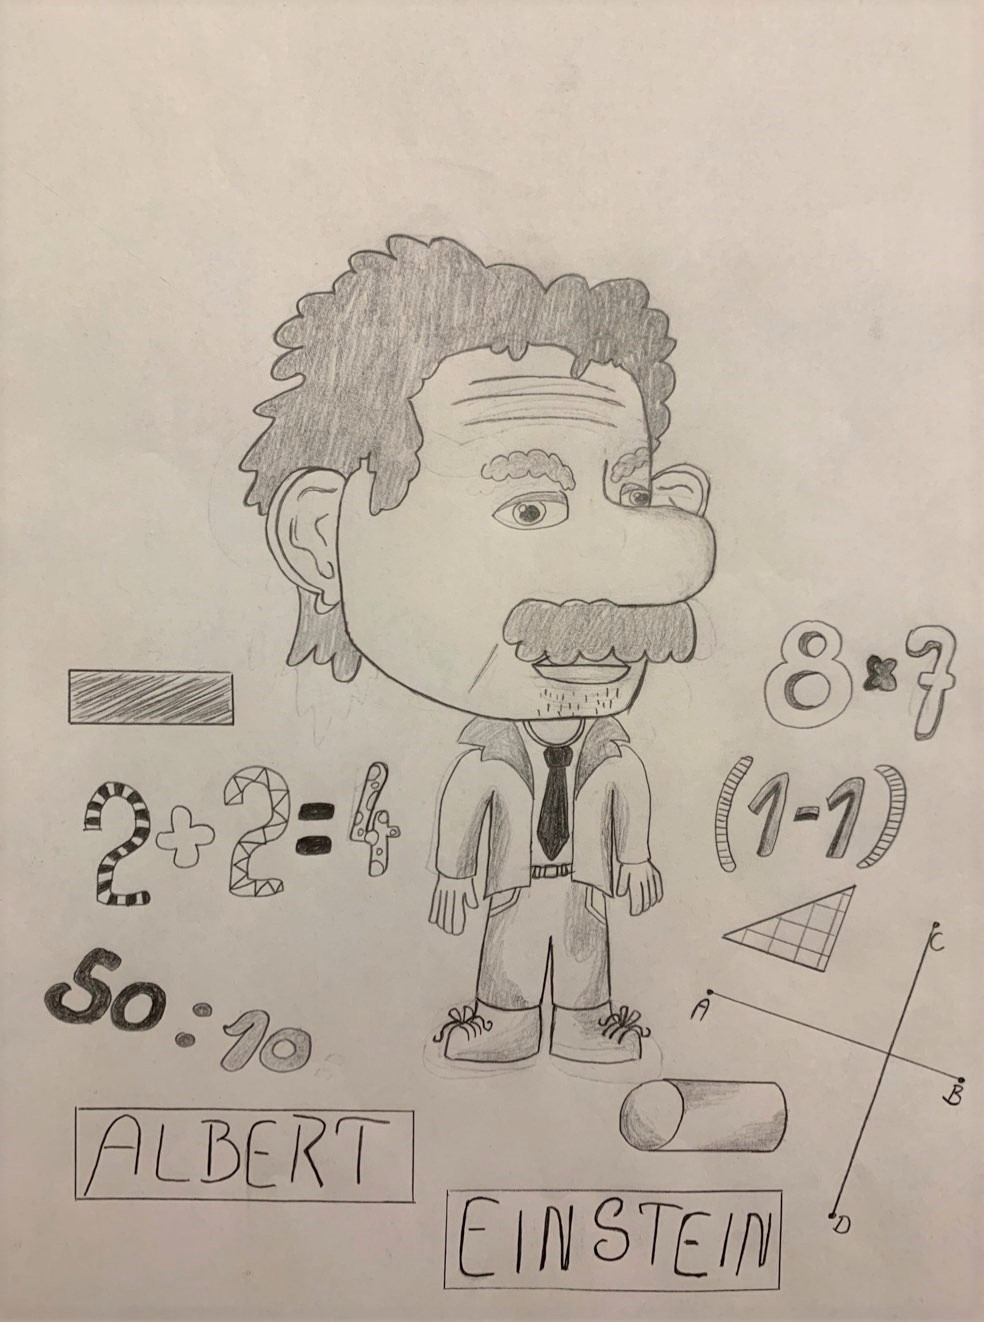 8 × 7
2+2=4
(1-1)
50:10
A
C
B
D
ALBERT
EINSTEIN